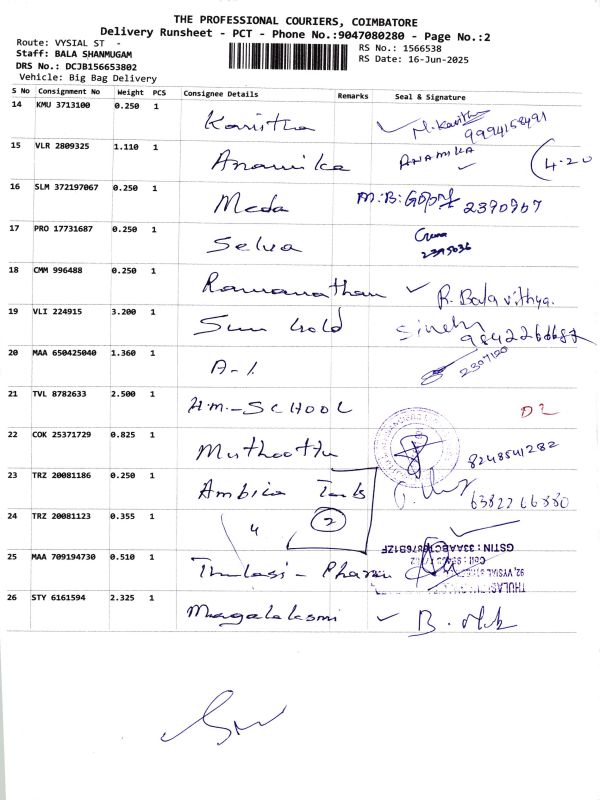 THE PROFESSIONAL COURIERS, COIMBATORE
Delivery Runsheet - PCT - Phone No.:9047080280 - Page No.:2
Route: VYSIAL ST -
Staff: BALA SHANMUGAM
RS No.: 1566538
DRS No.: DCJB156653802
RS Date: 16-Jun-2025
Vehicle: Big Bag Delivery
S No Consignment No Weight PCS Consignee Details Remarks Seal & Signature
14 KMU 3713100 0.250 1 Kavitha M. Kavitha
9994158491
15 VLR 2809325 1.110 1 Anamika ANAMIKA 4.20
16 SLM 372197067 0.250 1 Meda M.B. 2390907
17 PRO 17731687 0.250 1 Selva
2395036
18 CMM 996488 0.250 1 Ramanathan R. Bala vithya.
19 VLI 224915 3.200 1 Sun Gold
20 MAA 650425040 1.360 1 A-1 2307120
21 TVL 8782633 2.500 1 H.M.-SCHOOL D2
22 COK 25371729 0.825 1 Muthoottu 8248541282
23 TRZ 20081186 0.250 1 Ambica
24 TRZ 20081123 0.355 1 4 2
25 MAA 709194730 0.510 1 Thulasi - Pharm
92, VYSIAL
26 STY 6161594 2.325 1 Magalaksmi B.